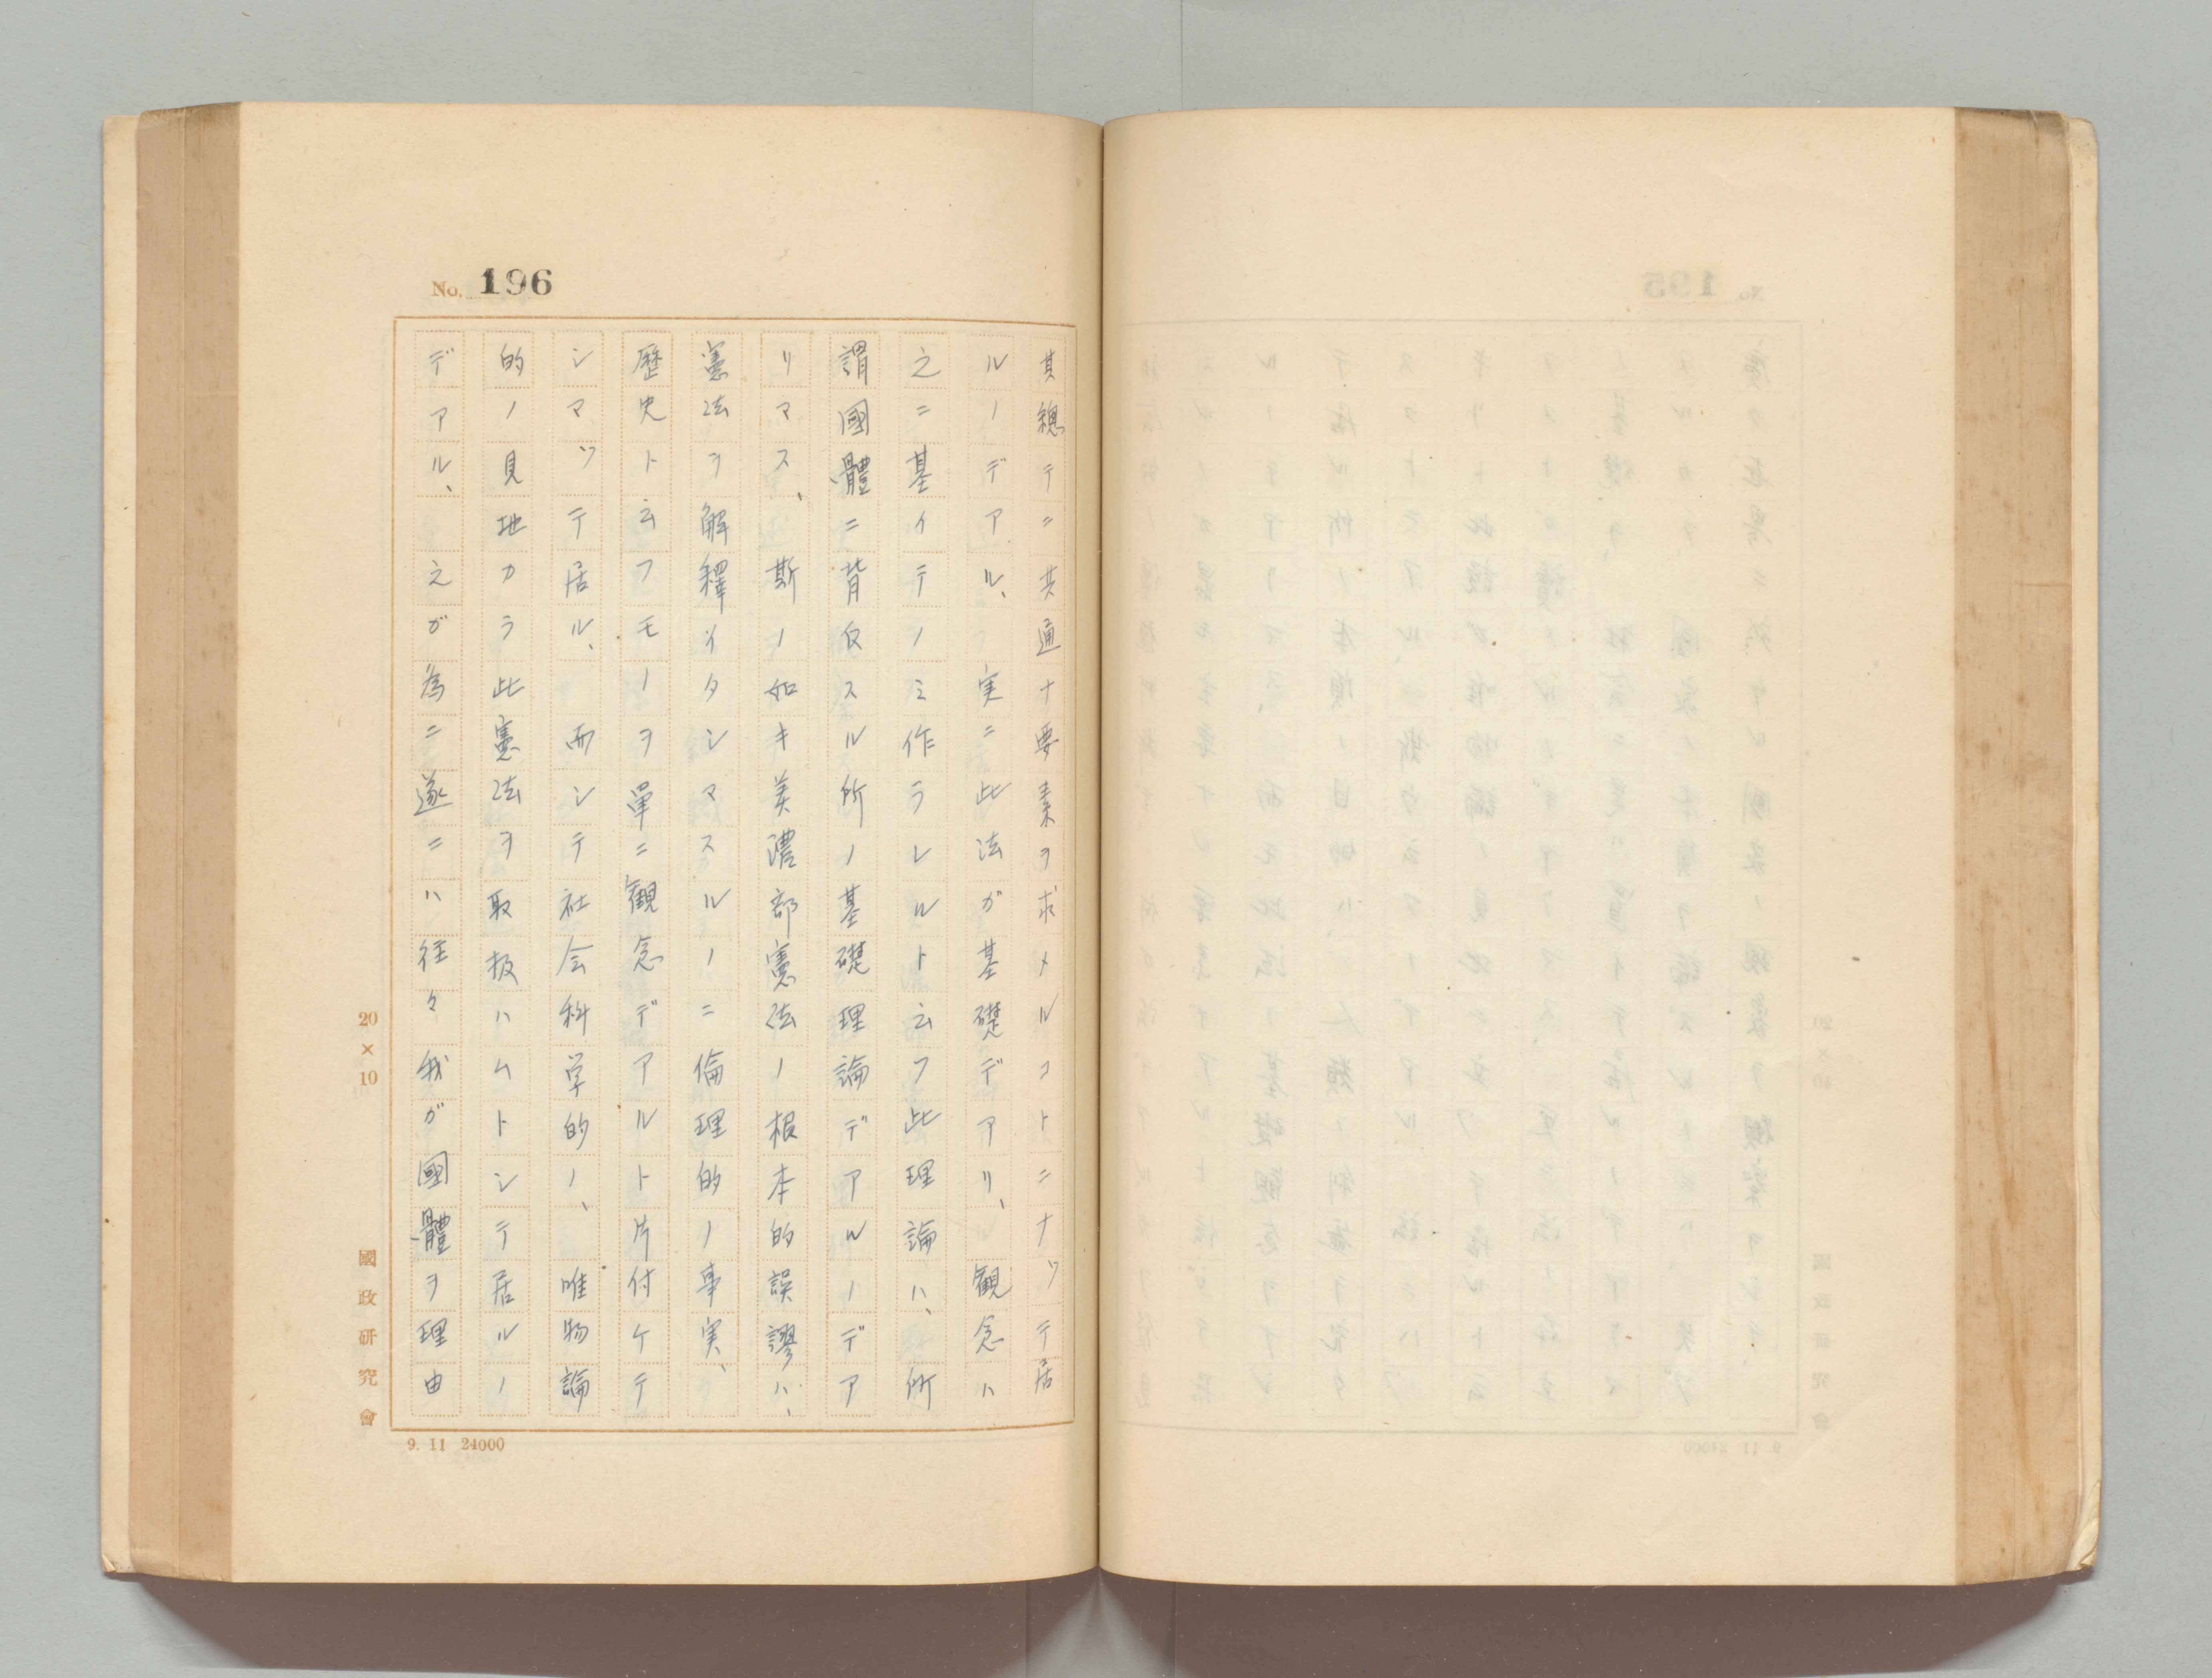 No. 196
其總テニ共通ナ要素ヲ求メルコトニナツテ居
ルノデアル、実ニ此法ガ基礎デアリ、観念ハ
之ニ基イテノミ作ラレルト云フ此理論ハ、所
謂國體ニ背反スル所ノ基礎理論デアルノデア
リマス、斯ノ如キ美濃部憲法ノ根本的誤謬ハ、
憲法ヲ解釋イタシマスルノニ倫理的ノ事実、
歴史ト云フモノヲ單ニ観念デアルト片付ケテ
シマツテ居ル、而シテ社会科学的ノ、唯物論
的ノ見地カラ此憲法ヲ取扱ハムトシテ居ルノ
デアル、之ガ為ニ遂ニハ往々我ガ國體ヲ理由
20×10
國政研究會
9. 11 24000